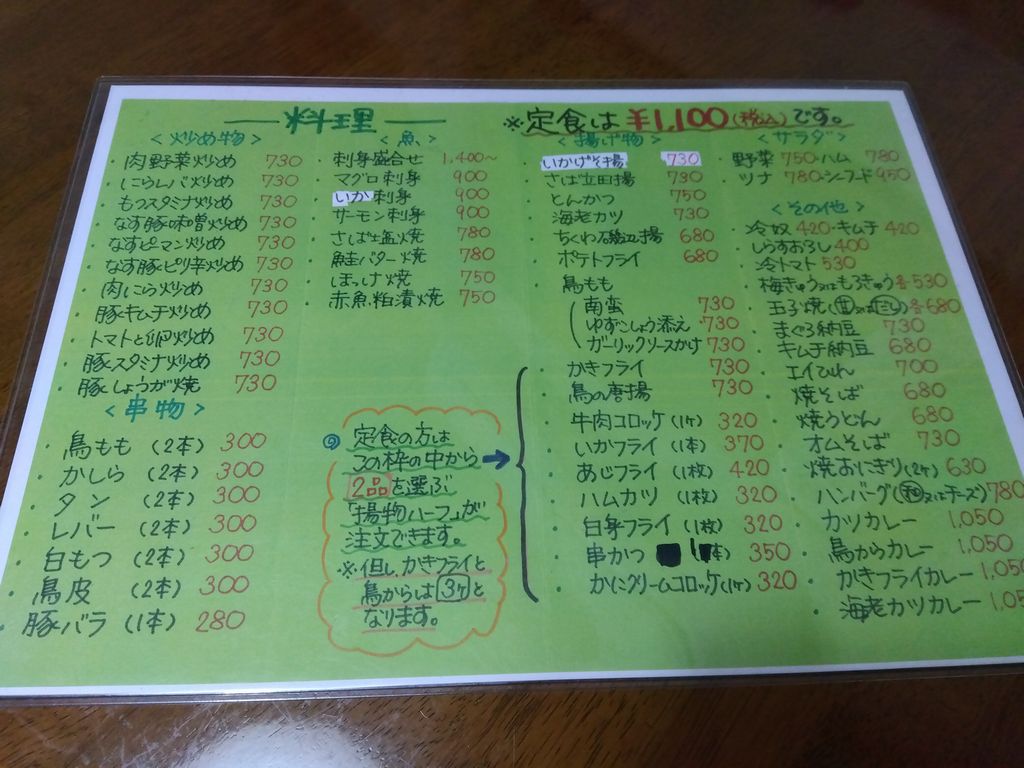 料理
※定食は ¥1,100(税込)です。
<炒め物>
・肉野菜炒め 730
・にらレバ炒め 730
・もつスタミナ炒め 730
・なす豚味噌炒め 730
・なすピーマン炒め 730
・なす豚ピリ辛炒め 730
・肉にら炒め 730
・豚キムチ炒め 730
・トマトと卵炒め 730
・豚スタミナ炒め 730
・豚しょうが焼 730
<串物>
・鳥もも (2本) 300
・かしら (2本) 300
・タン (2本) 300
・レバー (2本) 300
・白もつ (2本) 300
・鳥皮 (2本) 300
・豚バラ (1本) 280
<魚>
・刺身盛合せ 1,400~
・マグロ刺身 900
・いか刺身 900
・サーモン刺身 900
・さば塩焼 780
・鮭バター焼 780
・ほっけ焼 750
・赤魚粕漬焼 750
◎定食の方は
この枠の中から
2品を選ぶ
「揚物ハーフ」が
注文できます。
※但し、かきフライと
鳥からは3ケと
なります。
<揚げ物>
いかげそ揚 730
・さば立田揚 730
・とんかつ 750
・海老カツ 730
・ちくわ磯辺揚 680
・ポテトフライ 680
・鳥もも
南蛮 730
ゆずこしょう添え 730
ガーリックソースかけ 730
・かきフライ 730
・鳥の唐揚 730
・牛肉コロッケ(1ケ) 320
・いかフライ (1本) 370
・あじフライ (1枚) 420
・ハムカツ (1枚) 320
・白身フライ (1枚) 320
・串かつ 1本) 350
・かにクリームコロッケ(1ケ) 320
<サラダ>
・野菜 750・ハム 780
・ツナ 780・シーフード 950
<その他>
・冷奴 420・キムチ 420
・しらすおろし 400
・冷トマト 530
・梅きゅう又はもろきゅう各530
・玉子焼(甘又はだし)各680
・まぐろ納豆 730
・キムチ納豆 680
・エイひれ 700
・焼そば 680
・焼うどん 680
・オムそば 730
・焼おにぎり(2ケ) 630
・ハンバーグ(和又はチーズ)780
・カツカレー 1,050
・鳥からカレー 1,050
・かきフライカレー 1,05
・海老カツカレー 1,05